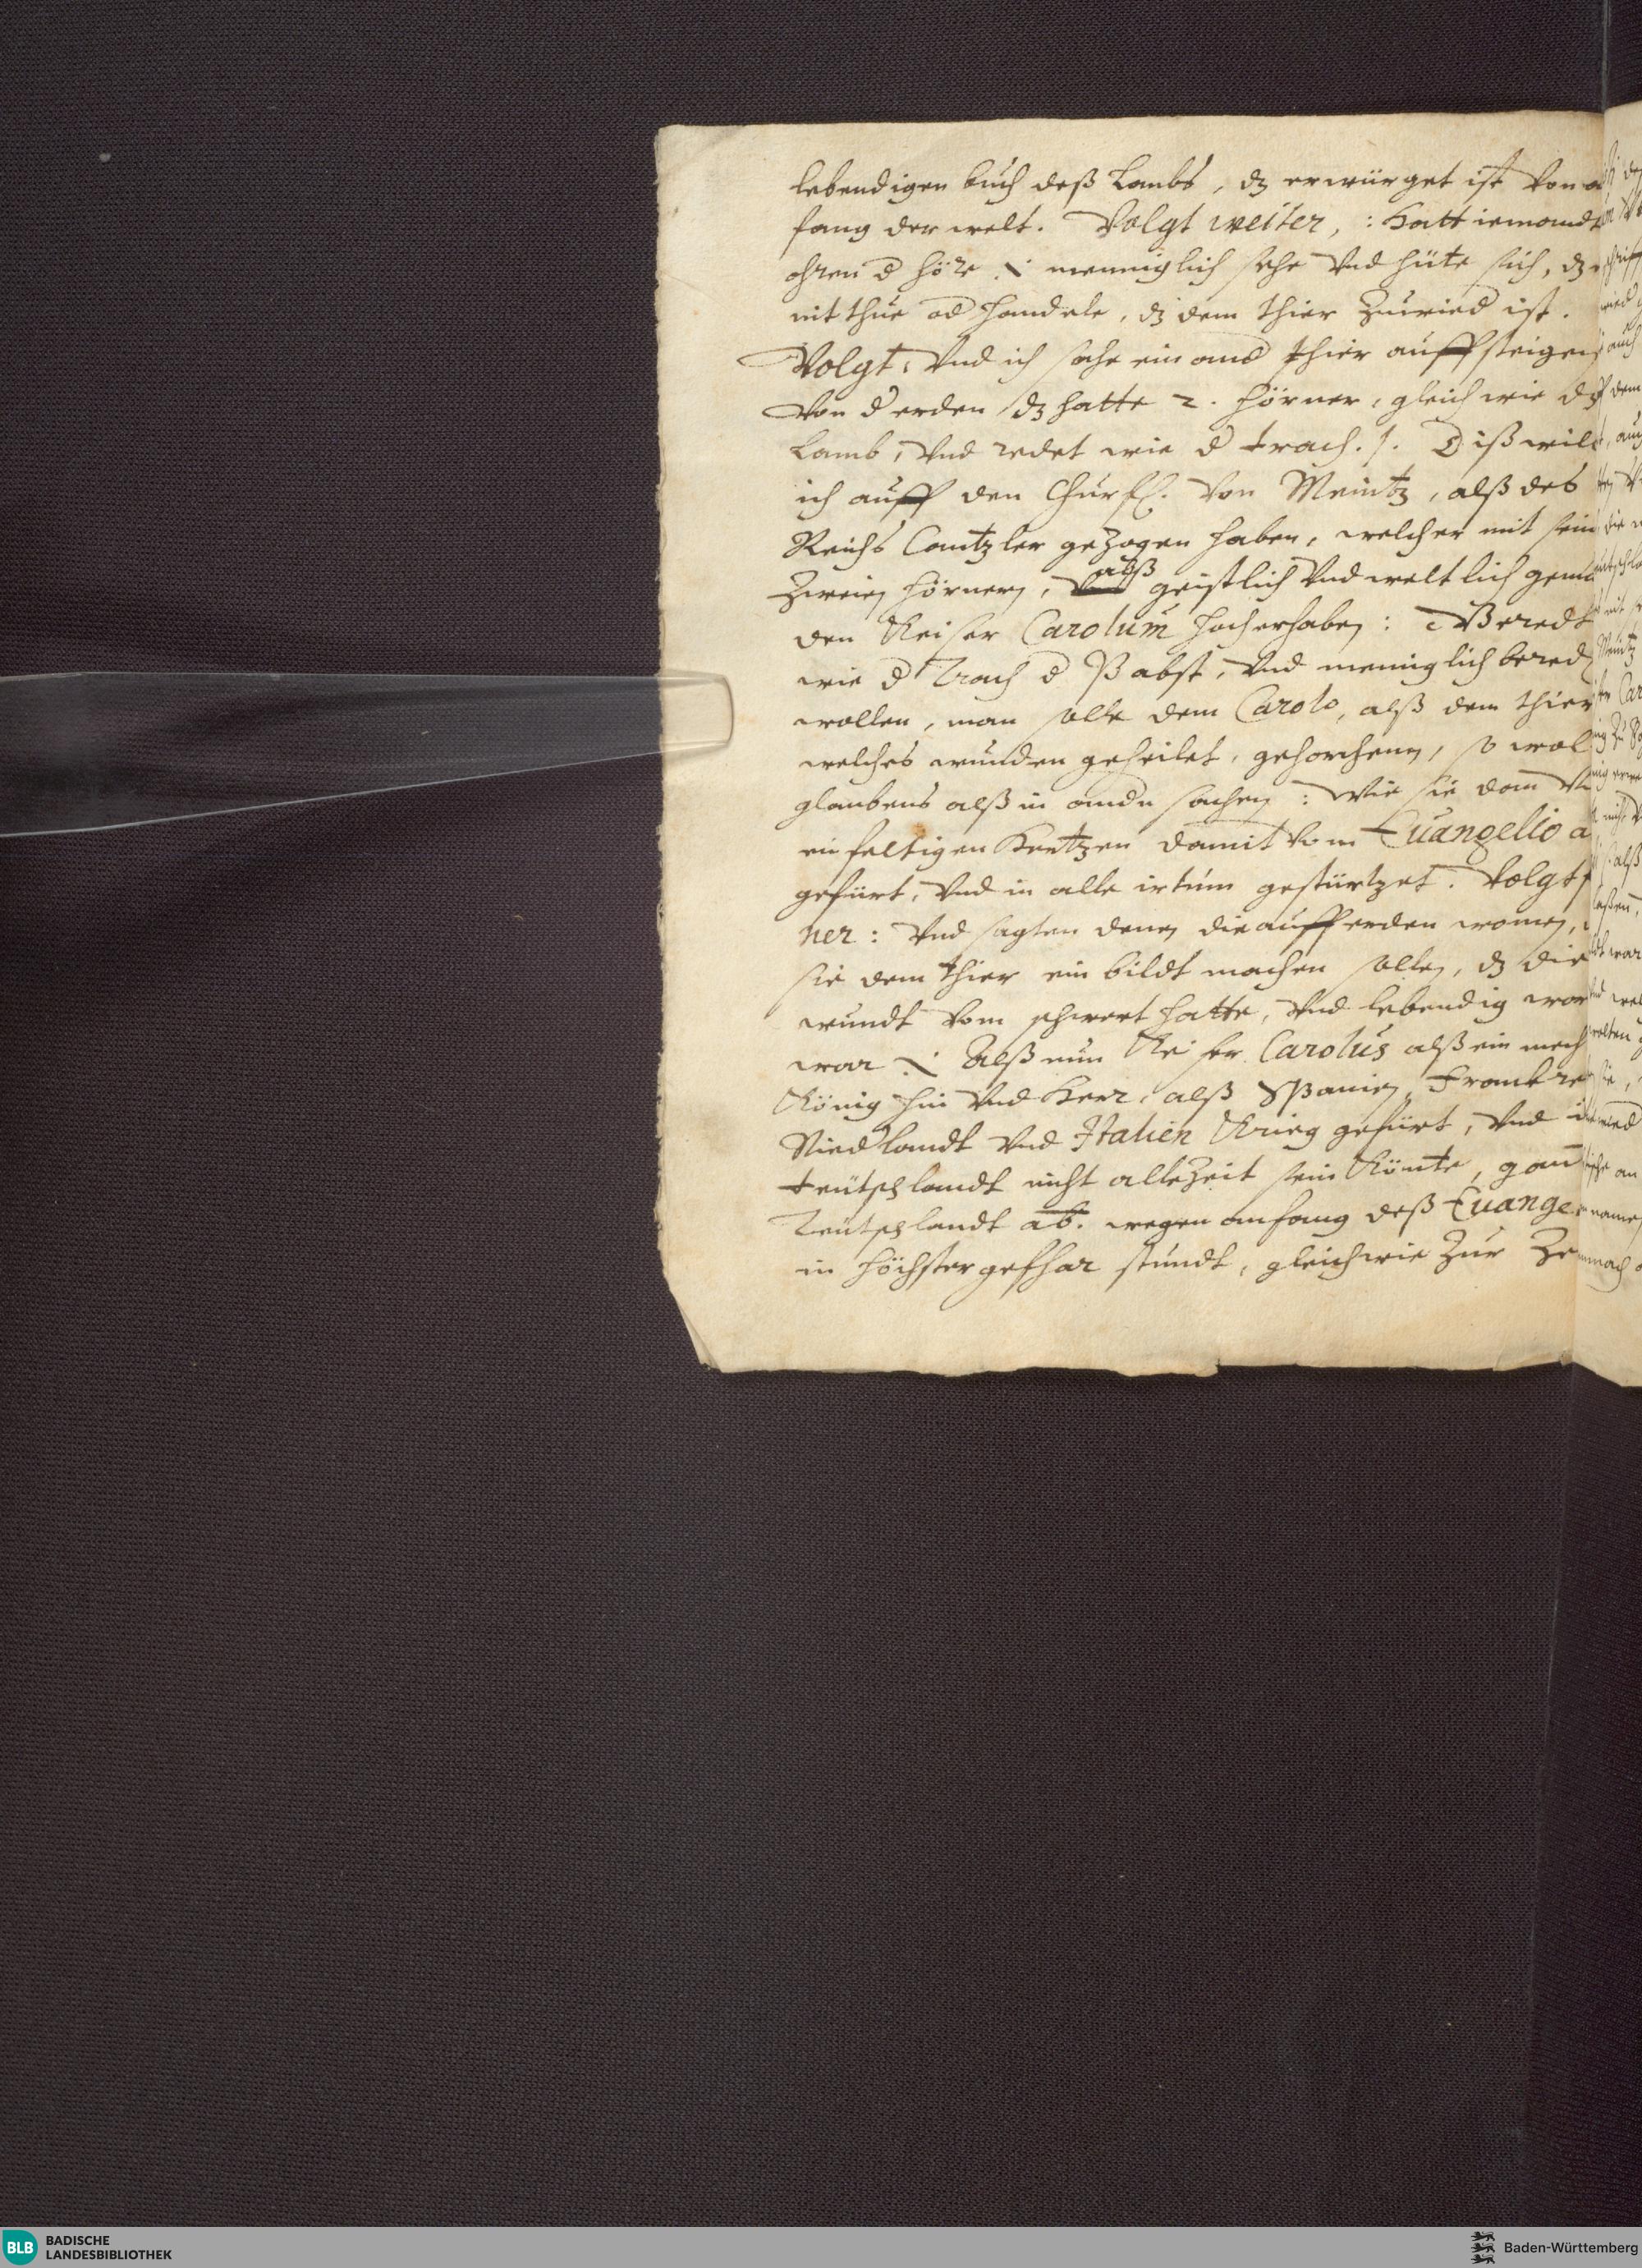 lebendigen buch deß Lambs, dz erwürget ist von a
fang der welt. Volgt weiter, : Hatt iemandt
ohren d höre /: menniglich sehe vnd hüte sich, dz
nit thue od handele, dz dem thier Zuwied ist.
Volgt: vnd ich sahe ein and thier auffsteigen
von d erden dz hatte 2. hörner, gleich wie dz
Lamb, vnd redet wie d trach. /. Diß will
ich auff den Churf. von Meintz, alß des
Reichs Cantzler gezogen haben, welcher mit sein
Zweien hörnern, alß geistlich vnd weltlich
den Keiser Carolum hocherhaben: Beredt
wie d Trach d Pabst, vnd menniglich bered
wollen, man solle dem Carolo, alß dem thier
welches wunden geheilet, gehorchenn, so wol
glaubens alß in andn sachen: Wie sie dann
einfeltigen damit vom Euangelio a
gefürt, vnd in alle irtum gestürtzet. Volgt f
ner: vnd sagten denen die auff erden wonen,
sie dem thier ein bildt machen sollen, dz die
wundt vom schwert hatte, vnd lebendig wor
war /: Alß nun Keiser Carolus alß ein mech
König hin vnd Herr, alß Spanien, Frankre
Niedlandt vnd Italien Krieg gefürt, vnd i
teutschlandt nicht alleZeit sein Könte, gan
Teutschlandt ab. wegen anfang deß Euange
in höchster gefhar stundt, gleichwie Zur Ze
BLB BADISCHE
LANDESBIBLIOTHEK
Baden-Württemberg